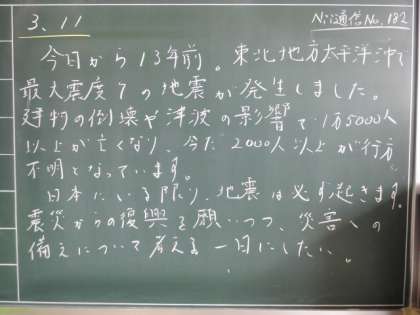 3.11
Nii通信No.182
今日から13年前。東北地方太平洋沖で
最大震度7の地震が発生しました。
建物の倒壊や津波の影響で1万5000人
以上が亡くなり、今だ2000人以上が行方
不明となっています。
日本にいる限り、地震は必ず起きます。
震災からの復興を願いつつ、災害への
備えについて考える一日にしたい。